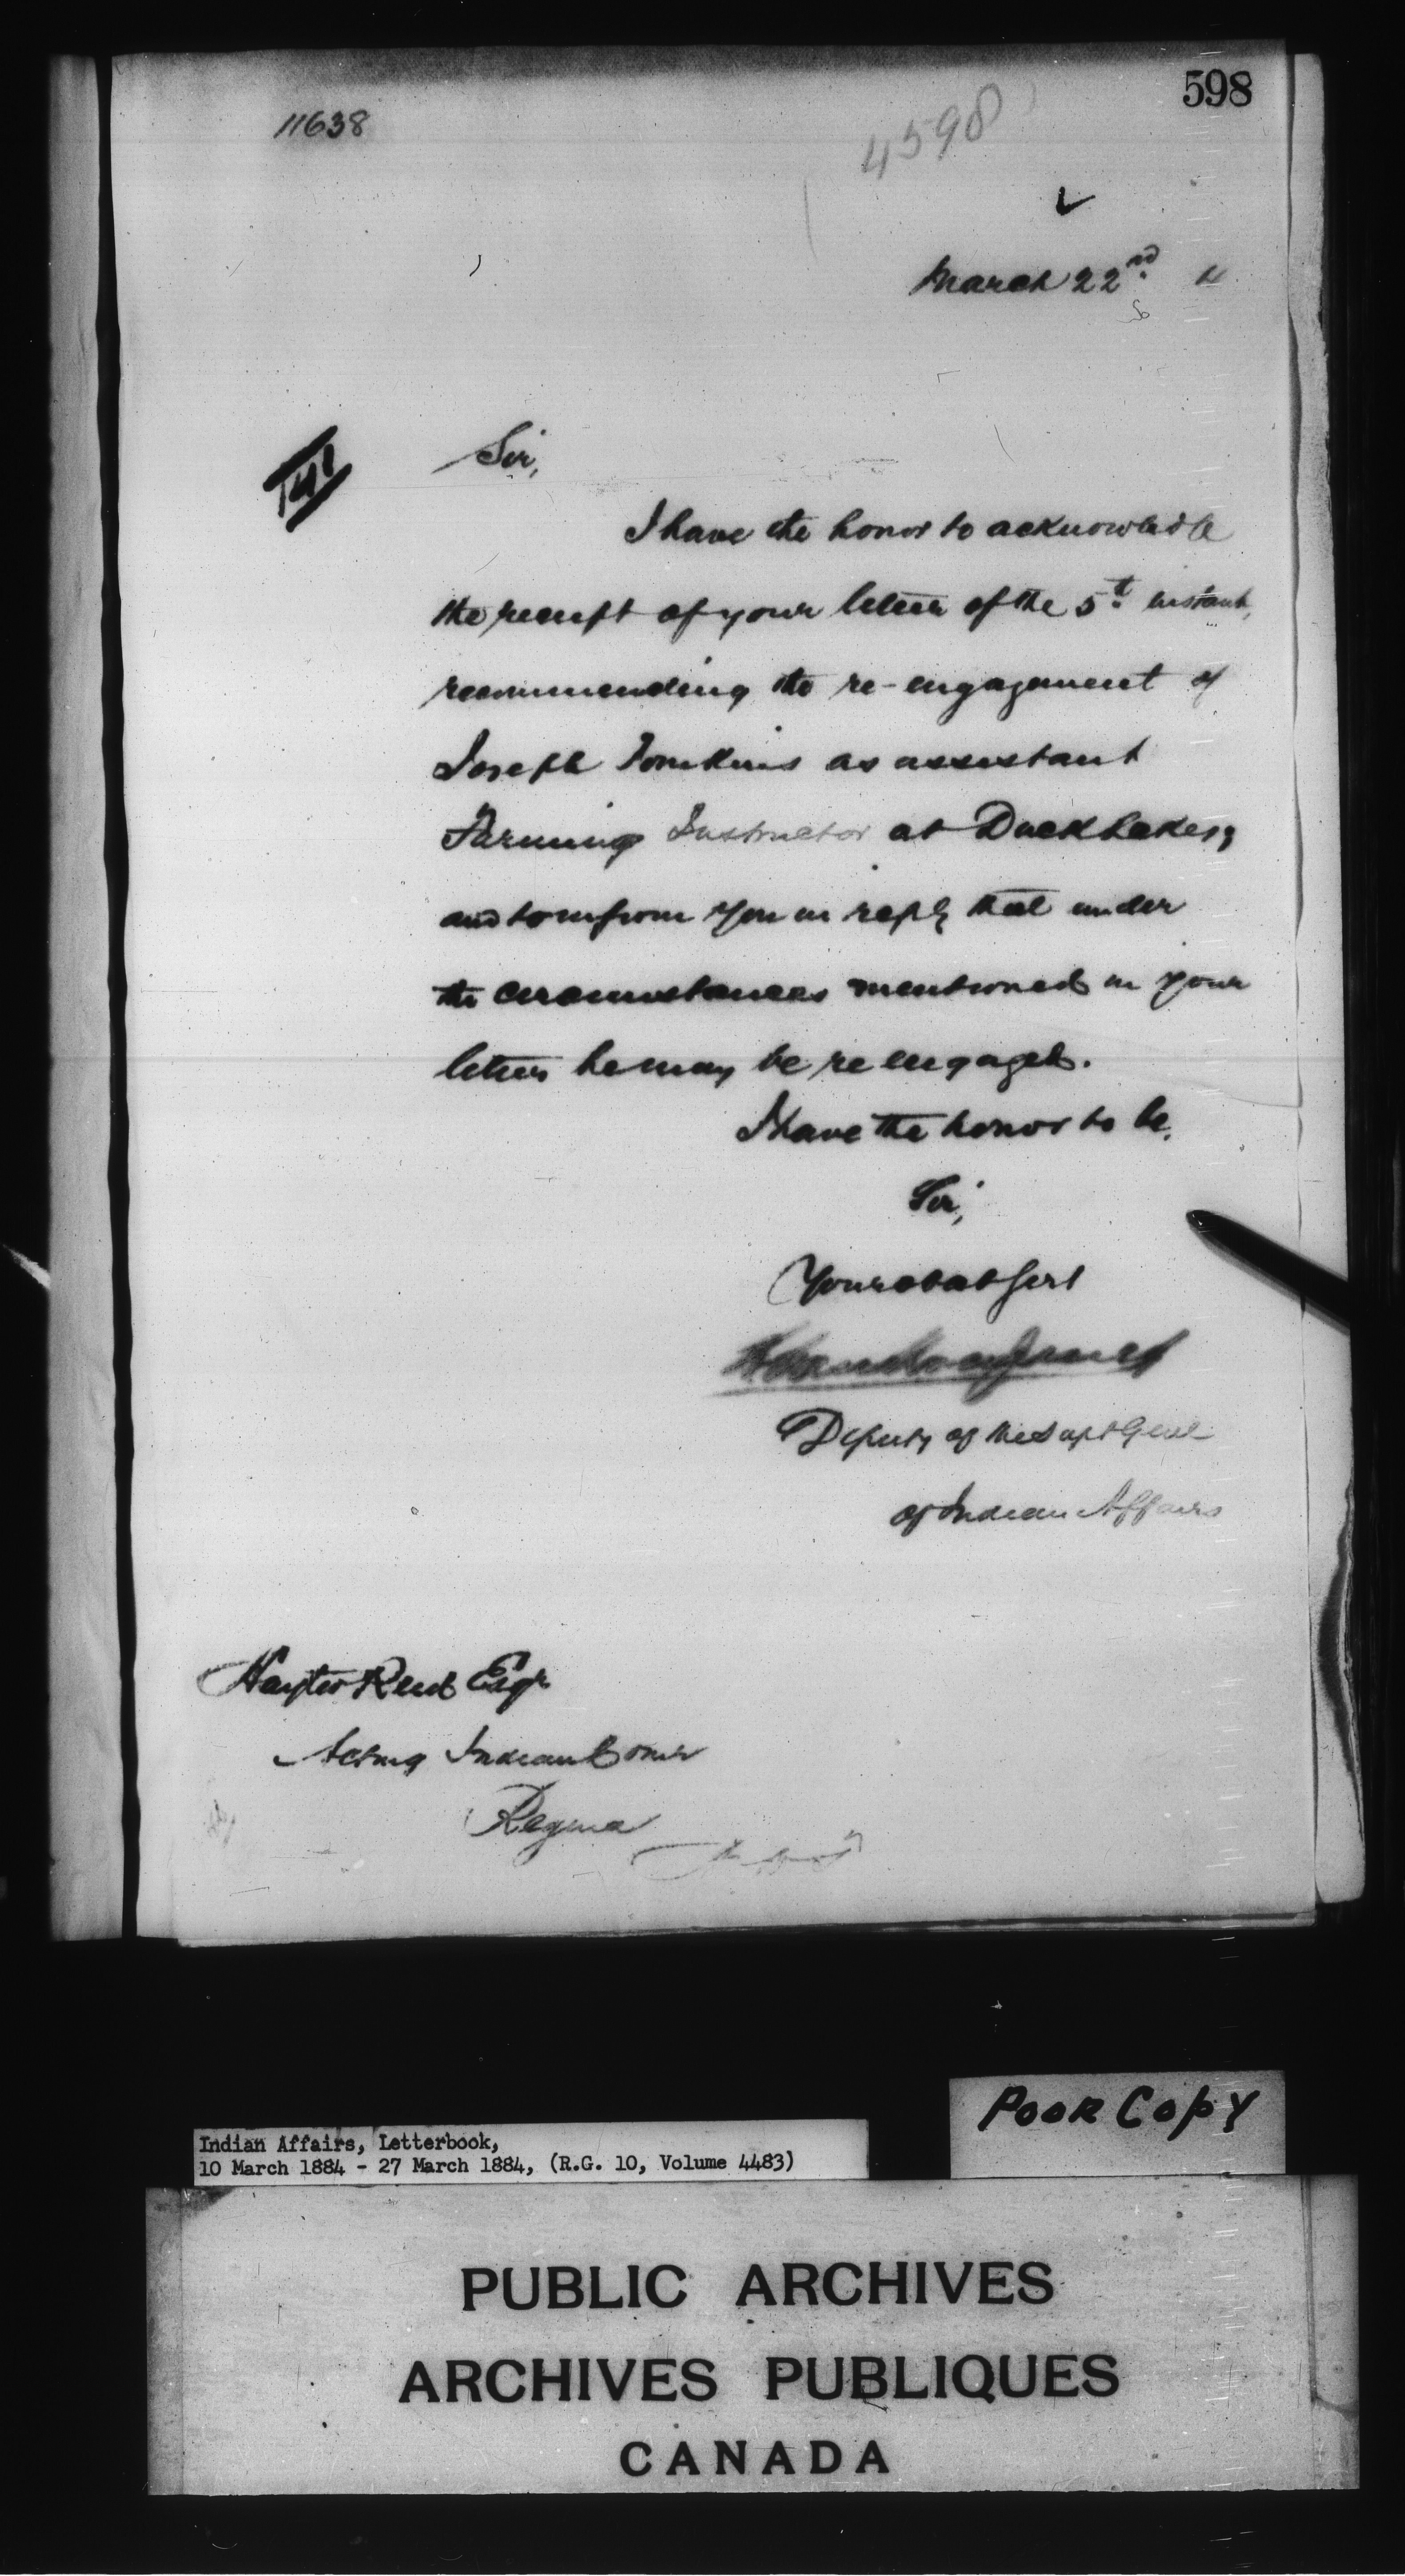 598
11638
4598
March 22nd 4
141
Sir,
I have the honor to acknowledge
the receipt of your letter of the 5th instant,
recommending the re-engagement of
Joseph Tomkins as assistant
Farming Instructor at Duck Lake,
and to inform you in reply that under
the circumstances mentioned in your
letter he may be re engaged.
I have the honor to be,
Sir,
Your obdt Servt
L. Vankoughnet
Deputy of the Supt Genl
of Indian Affairs
Hayter Reed Esqr
Acting Indian Comr
Regina
Poor Copy
Indian Affairs, Letterbook,
10 March 1884 - 27 March 1884, (R.G. 10, Volume 4483)
PUBLIC ARCHIVES
ARCHIVES PUBLIQUES
CANADA